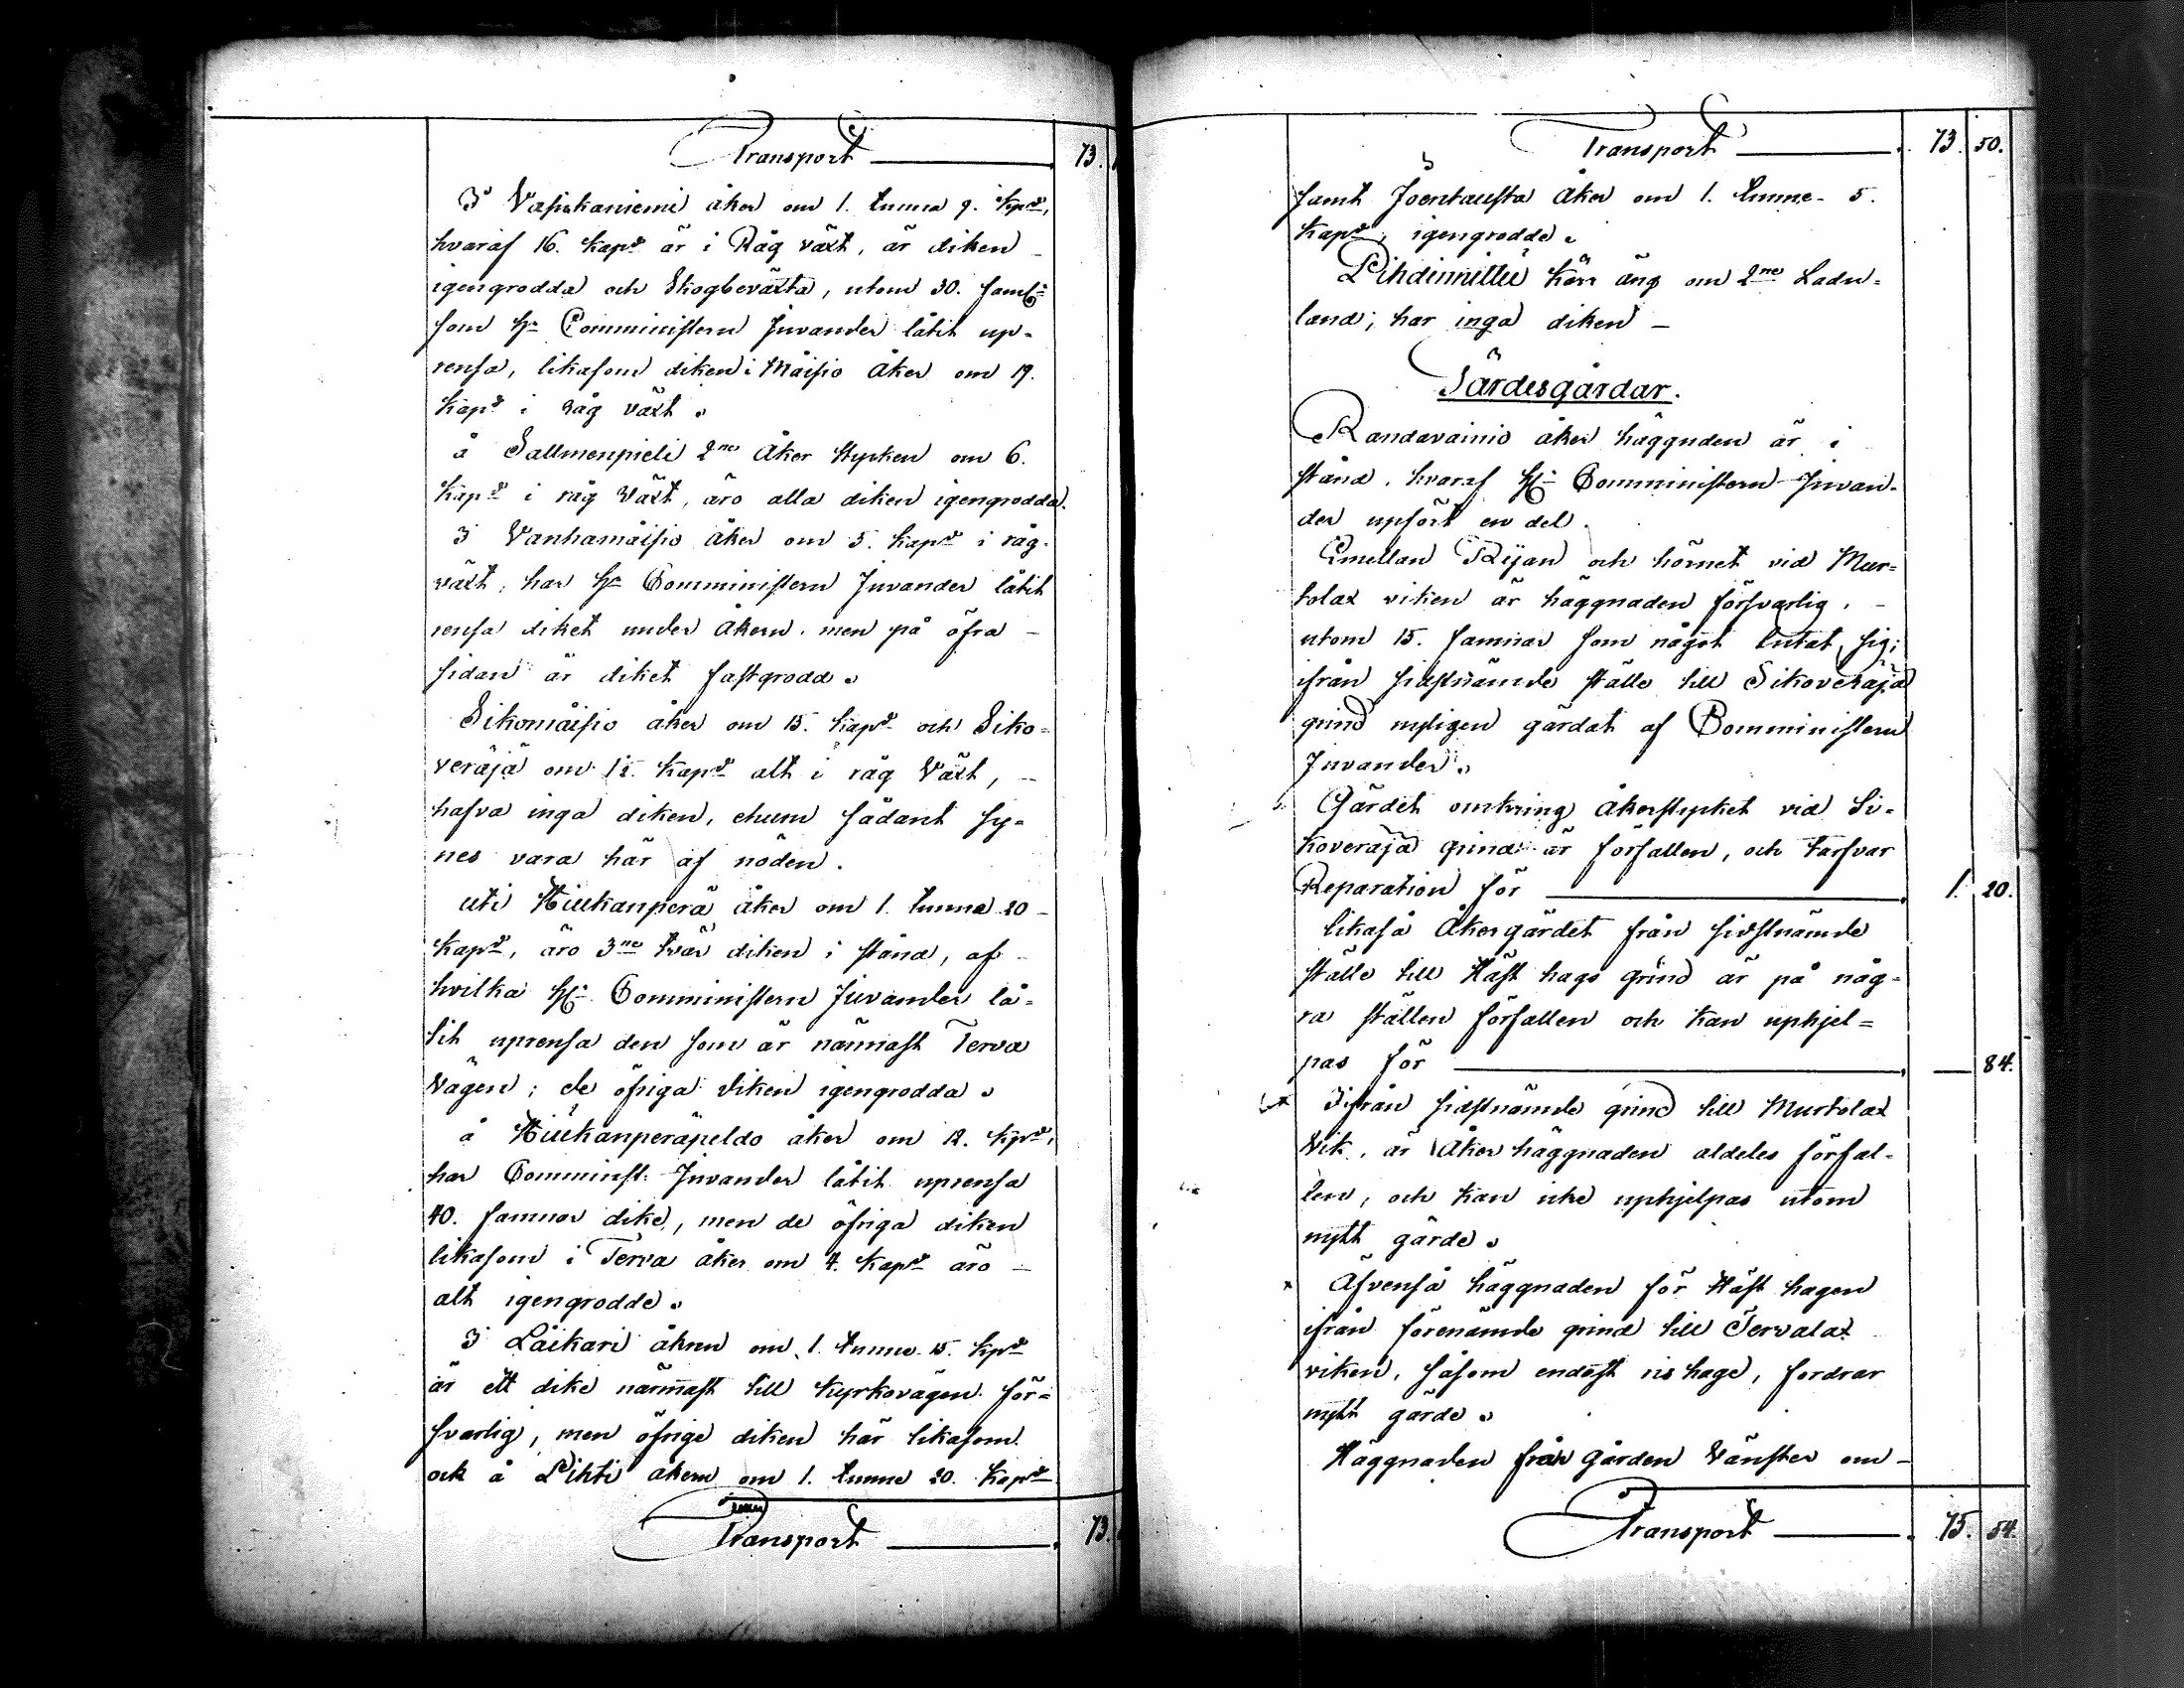 Transport 73.
I Vasikaniemi åker om 1. tunna 9. kpr,
hvaraf 16. kapr är i Råg växt, är diken
igengrodda och Skogbeväxta, utom 30. famlr
som Hr Comministern Juvander låtit up-
rensa, likasom diken i Måisio Åker om 19.
kapr i Råg växt.
å Sallmenpieli 2ne Åker stycken om 6.
kapr i råg växt, äro alla diken igengrodda.
I Vanhamåisio åker om 5. kapr i råg-
växt, har Hr Comministern Juvander låtit
rensa diket under Åkern, men på öfra
sidan är diket fastgrodd.
Sikomåisio åker om 15. kapr och Siko-
veräjä om 12. kapr alt i råg växt,
hafva inga diken, ehuru sådant sy-
nes vara här af nöden.
uti Hiukanperä åker om 1. tunna 20
kapr, äro 3ne tvär diken i stånd, af
hvilka Hr Comministern Juvander lå-
tit uprensa den som är närmast Terva
Vägen; de öfriga diken igengrodda.
å Hiukanperäpeldo åker om 12. kpr,
har Comminist: Juvander låtit uprensa
40. famnar dike, men de öfriga diken
likasom i Terva åker om 4. kapr äro
alt igengrodde.
I Läikäri åkren om 1. tunne 15. kpr
är ett dike närmast till kyrkovägen för-
svarlig, men öfrige diken här likasom
ock å Pihti åkern om 1. tunne 20. kapr
Transport 73.
Transport 73. 50.
samt Joentausta Åker om 1. tunne 5.
kapr, igengrodde.
Pihdinnittu Kärr äng om 2ne Ladu-
land; har inga diken
Gärdesgårdar.
Randavainio åker häggnden är i
stånd, hvaraf Hr Comministern Juvan-
der upfört en del.
Emellan Rijan och hörnet vid Mur-
tolax viken är häggnaden försvarlig,
utom 15. famnar som något lutat sig;
ifrån sidstnämde ställe till Sikoveräjä
grind nyligen gärdat af Comministern
Juvander.
Gärdet omkring Åkerstycket vid Si-
koveräjä grind är förfallen, och tarfvar
Reparation för 1. 20.
likaså Åkergärdet från sidstnämde
ställe till Häst hags grind är på någ-
ra ställen förfallen och kan uphjel-
pas för 84.
Ifrån sidstnämde grind till Murtolax
Vik, är Åker häggnaden aldeles förfal-
len, och kan icke uphjelpas utom
nytt gärde.
Äfvenså häggnaden för Häst hagen
ifrån förenämde grind till Tervalax
viken, såsom endast ris hage, fordrar
nytt gärde.
Häggnaden från gården Vänster om
Transport 75. 54.